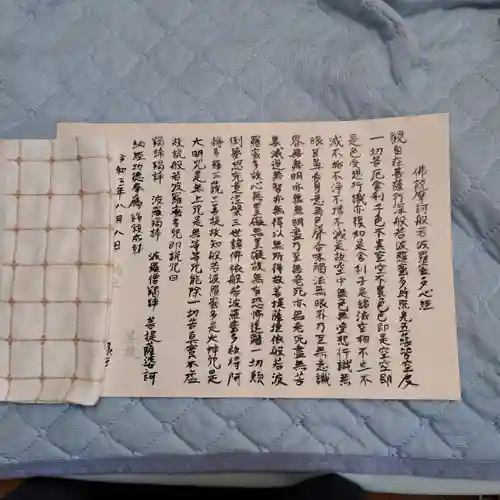 佛說摩訶般若波羅蜜多心經
觀自在菩薩行深般若波羅蜜多時照見五蘊皆空度
一切苦厄舍利子色不異空空不異色色即是空空即
是色受想行識亦復如是舍利子是諸法空相不生不
滅不垢不淨不增不減是故空中無色無受想行識無
眼耳鼻舌身意無色聲香味觸法無眼界乃至無意識
界無無明亦無無明盡乃至無老死亦無老死盡無苦
集滅道無智亦無得以無所得故菩提薩埵依般若波
羅蜜多故心無罣礙無罣礙故無有恐怖遠離一切顛
倒夢想究竟涅槃三世諸佛依般若波羅蜜多故得阿
耨多羅三藐三菩提故知般若波羅蜜多是大神咒是
大明咒是無上咒是無等等咒能除一切苦真實不虛
故說般若波羅蜜多咒即說咒曰
羯諦羯諦 波羅羯諦 波羅僧羯諦 菩提薩婆訶
納經功德奉為
令和三年八月八日